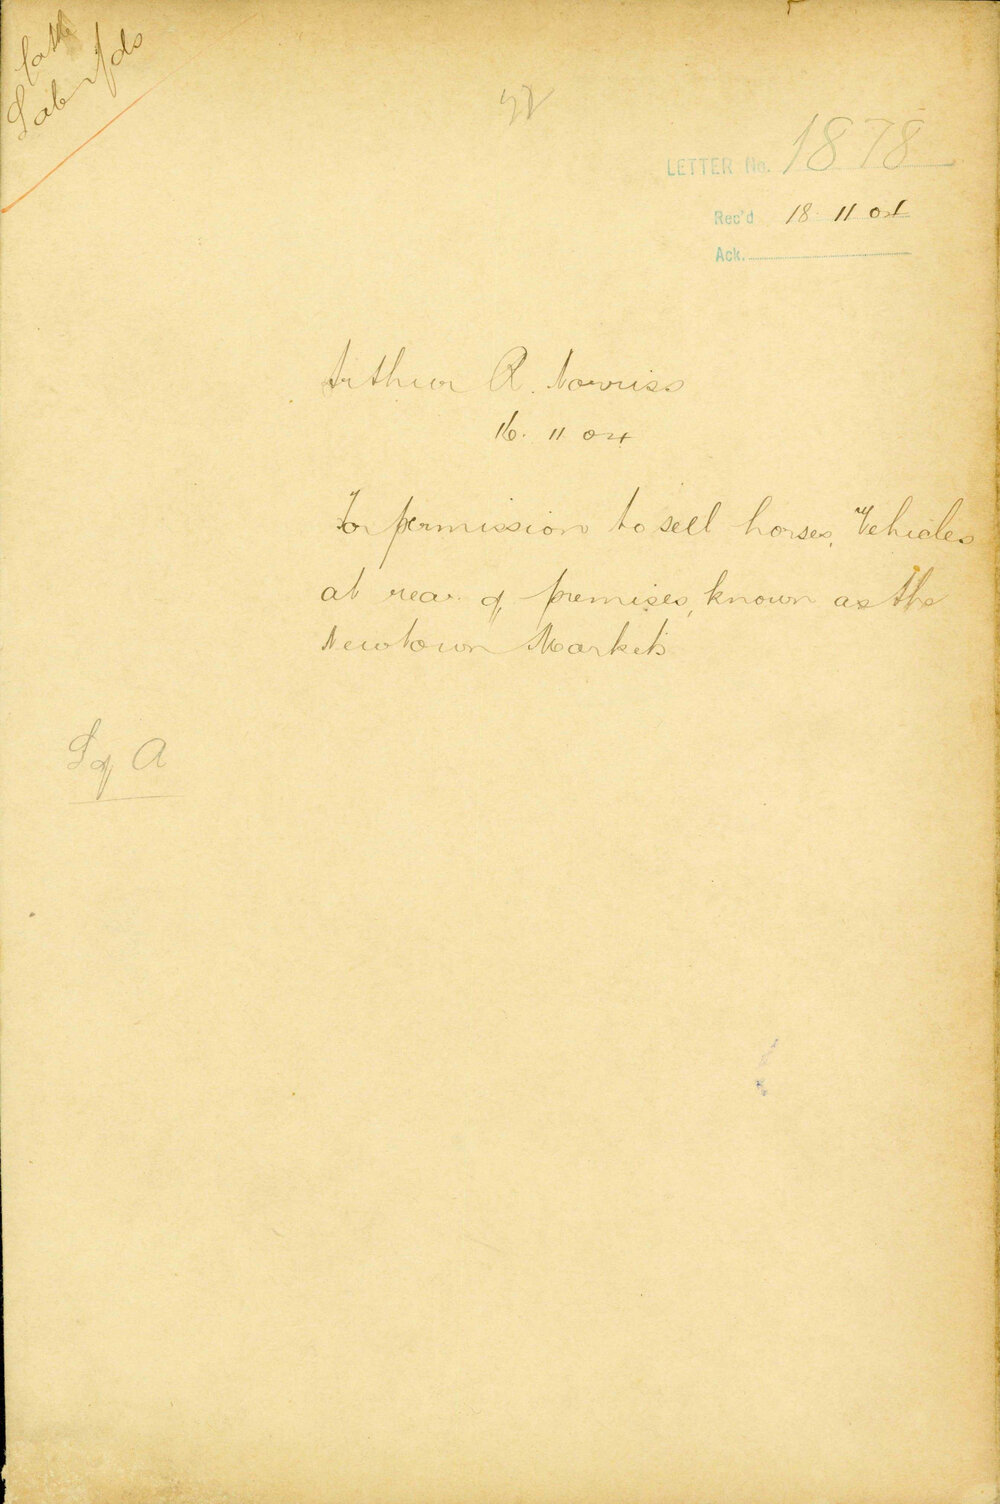 LETTER No. 1878
Rec'd 18 11 04
Ack.
Arthur R. Norriss
16. 11 04
For permission to sell horses, Vehicles
at rear of premises, known as the
Newtown Markets